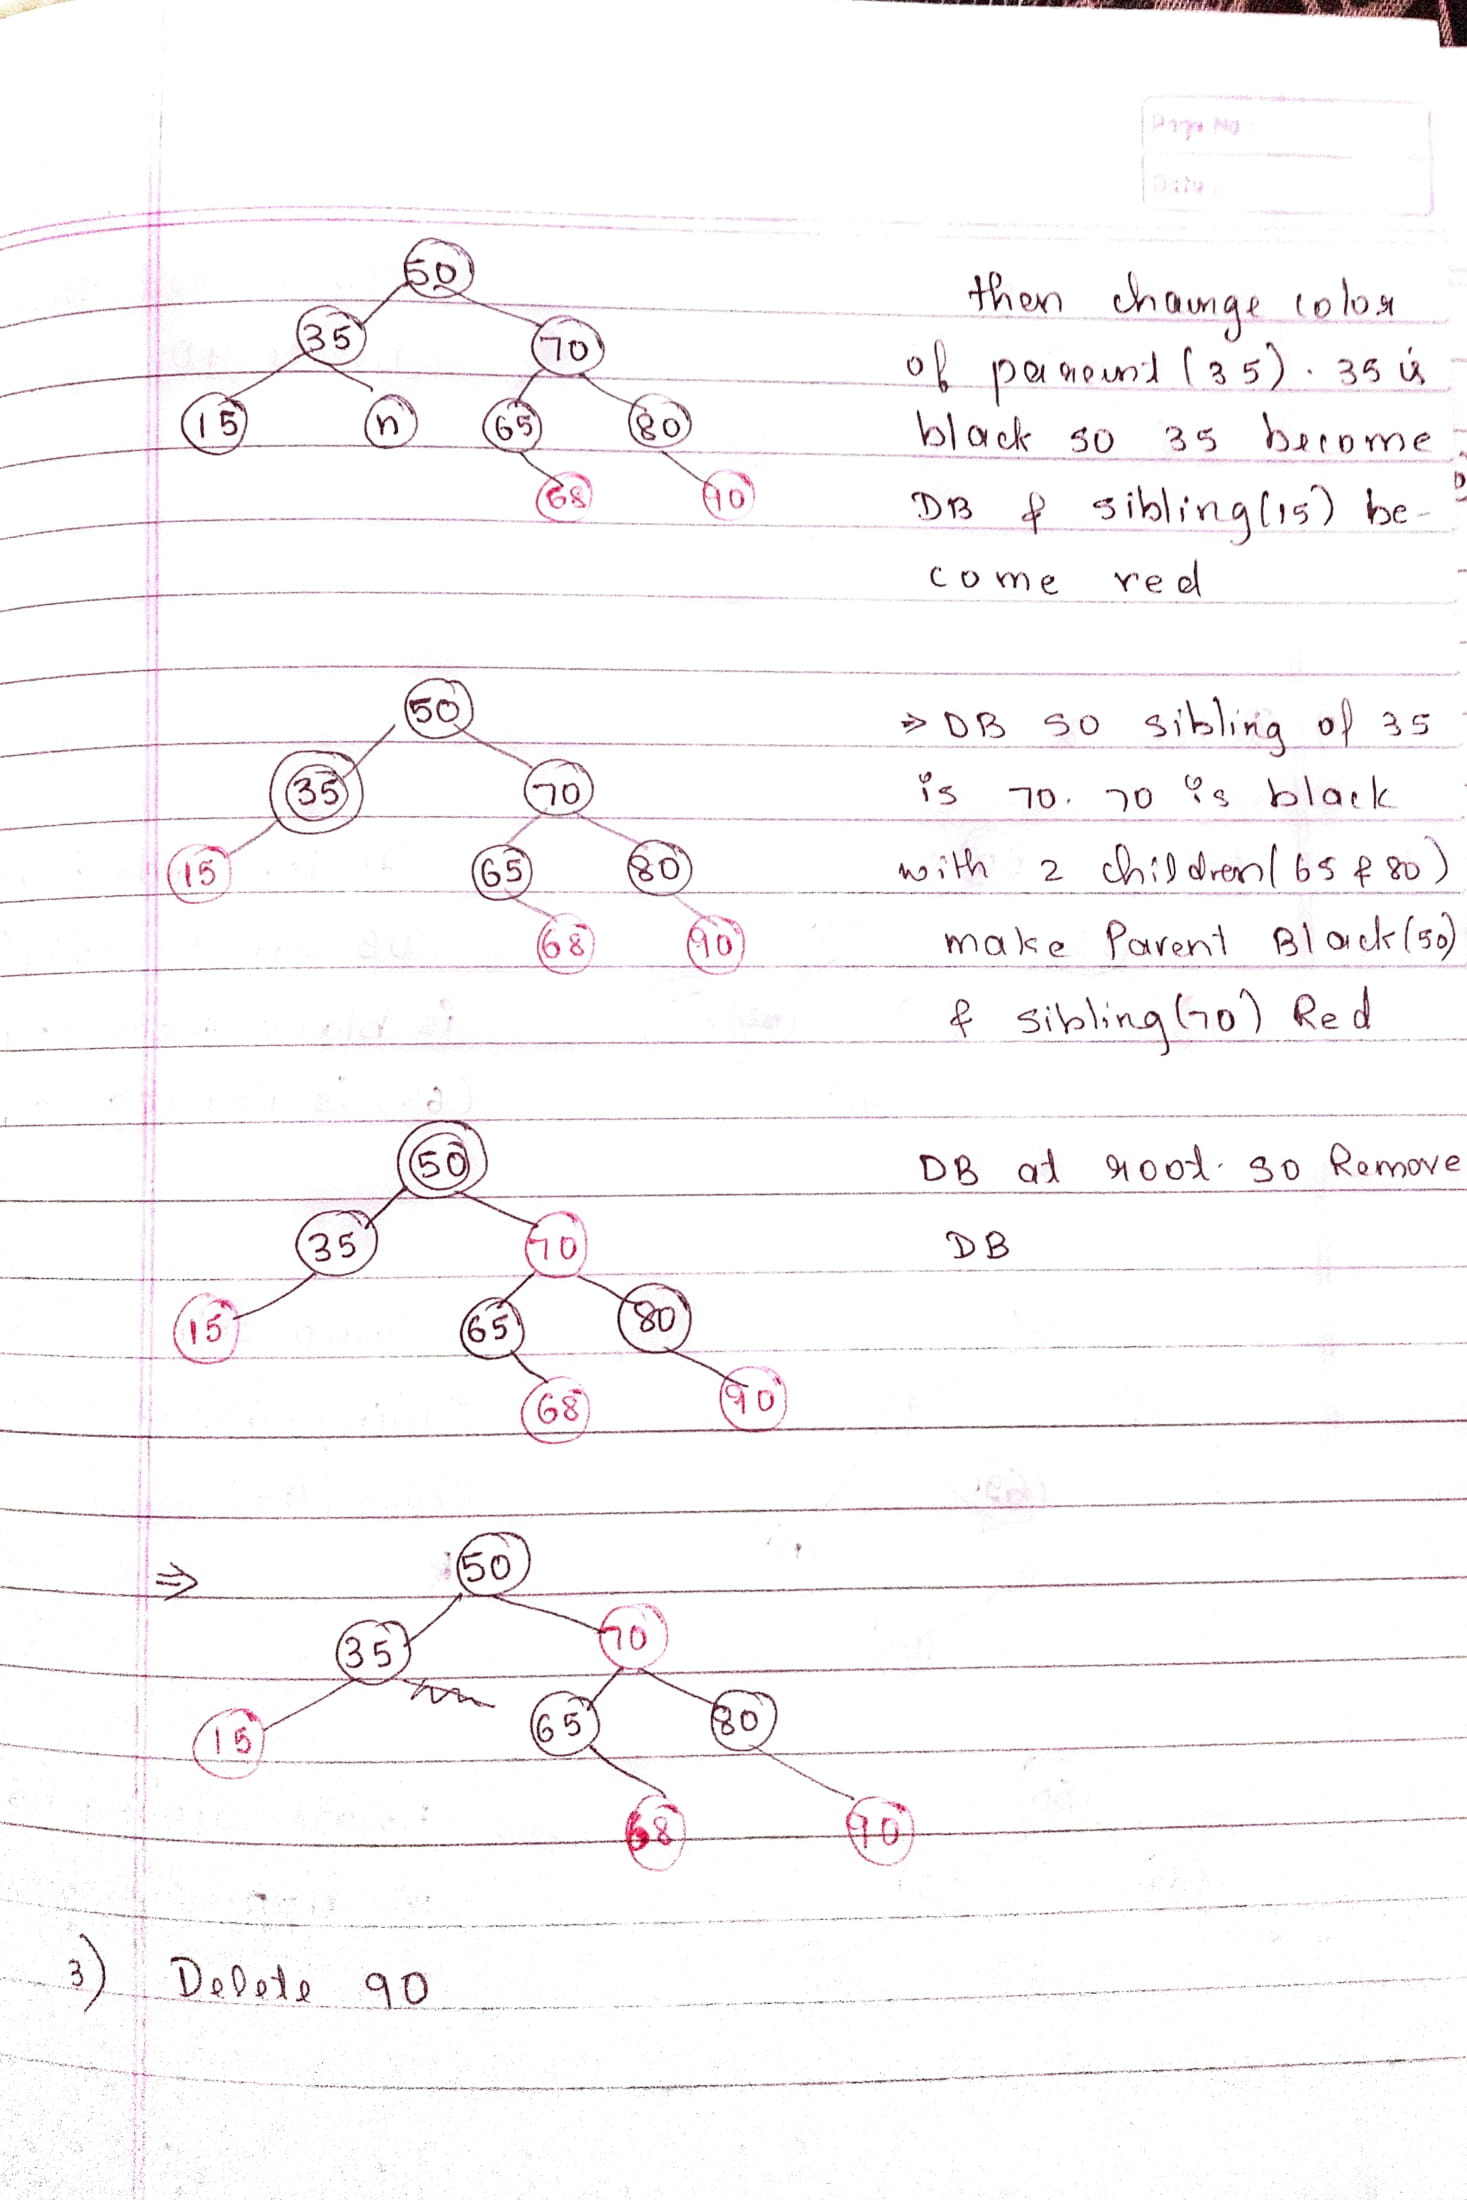 Page No
Date
50
35
70
15
n
65
80
68
90
then chaunge color
of pareunt (35). 35 is
black so 35 become
DB & sibling(15) be-
come red
50
35
70
15
65
80
68
90
⇒ DB so sibling of 35
is 70. 70 is black
with 2 children(65 & 80)
make Parent Black(50)
& sibling(70) Red
50
35
70
15
65
80
68
90
DB at root. so Remove
DB
⇒
50
35
70
15
65
80
68
90
3) Delete 90